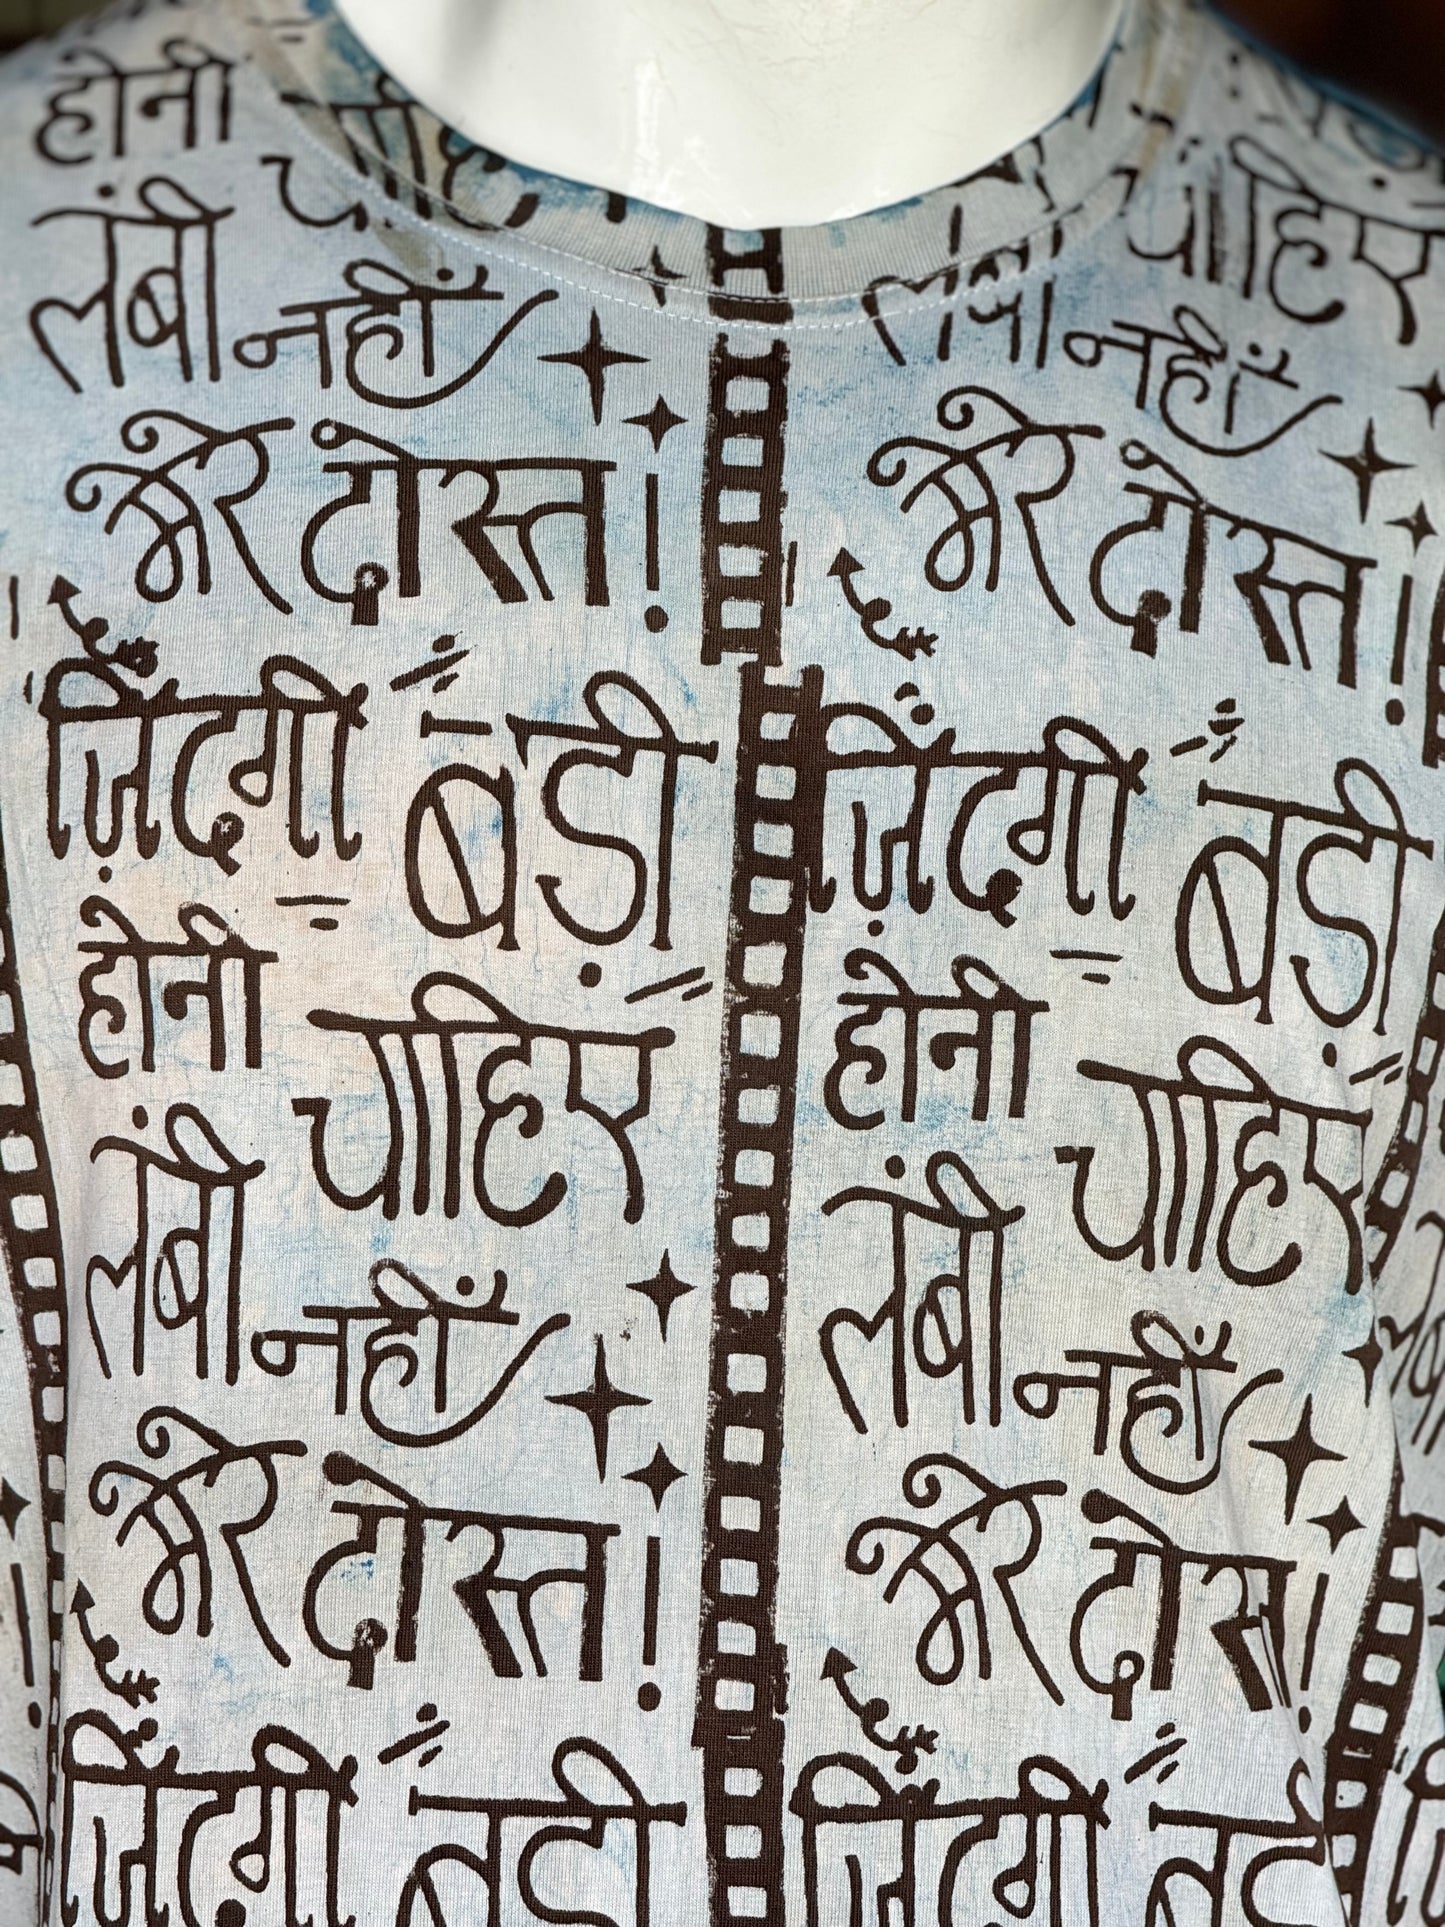 होनी चाहिए
लंबी नहीं
मेरे दोस्त!
ज़िंदगी बड़ी
होनी चाहिए
लंबी नहीं
मेरे दोस्त!
ज़िंदगी बड़ी
चाहिए
लंबी नहीं
मेरे दोस्त!
ज़िंदगी बड़ी
होनी चाहिए
लंबी नहीं
मेरे दोस्त!
ज़िंदगी बड़ी